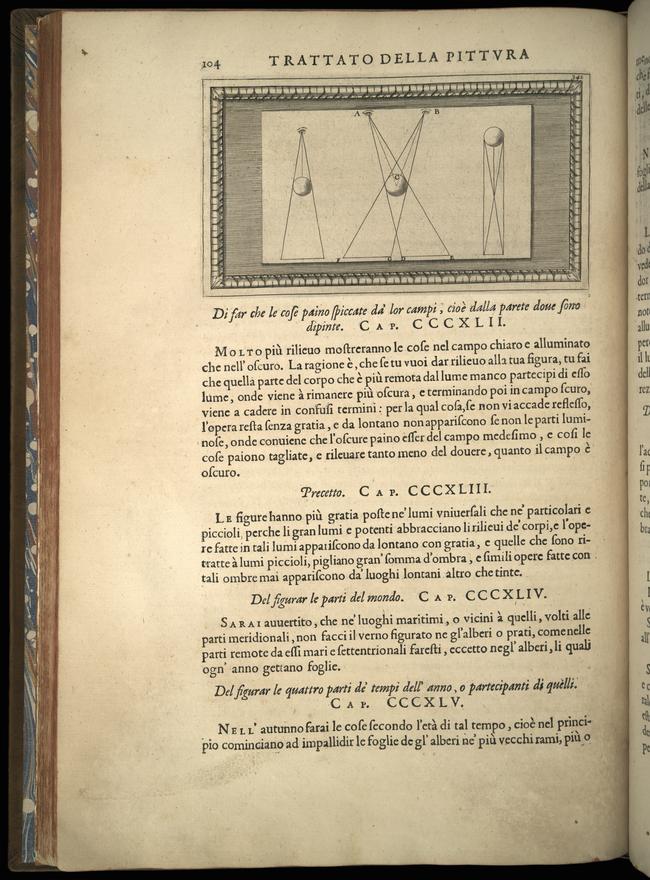 104
TRATTATO DELLA PITTVRA
341
A
B
C
F
G D
E
Di far che le coſe paino ſpiccate da' lor campi, cioè dalla parete doue ſono
dipinte. CAP. CCCXLII.
MOLTO più rilieuo moſtreranno le coſe nel campo chiaro e alluminato
che nell' oſcuro. La ragione è, che ſe tu vuoi dar rilieuo alla tua figura, tu fai
che quella parte del corpo che è più remota dal lume manco partecipi di eſſo
lume, onde viene à rimanere più oſcura, e terminando poi in campo ſcuro,
viene a cadere in confuſi termini: per la qual coſa, ſe non vi accade refleſſo,
l'opera reſta ſenza gratia, e da lontano non appariſcono ſe non le parti lumi-
noſe, onde conuiene che l'oſcure paino eſſer del campo medeſimo, e coſi le
coſe paiono tagliate, e rileuare tanto meno del douere, quanto il campo è
oſcuro.
Precetto. CAP. CCCXLIII.
LE figure hanno più gratia poſte ne' lumi vniuerſali che ne' particolari e
piccioli, perche li gran lumi e potenti abbracciano li rilieui de' corpi, e l'ope-
re fatte in tali lumi appariſcono da lontano con gratia, e quelle che ſono ri-
tratte à lumi piccioli, pigliano gran' ſomma d'ombra, e ſimili opere fatte con
tali ombre mai appariſcono da' luoghi lontani altro che tinte.
Del figurar le parti del mondo. CAP. CCCXLIV.
SARAI auuertito, che ne' luoghi maritimi, o vicini à quelli, volti alle
parti meridionali, non facci il verno figurato ne gl'alberi o prati, come nelle
parti remote da eſſi mari e ſettentrionali fareſti, eccetto negl' alberi, li quali
ogn' anno gettano foglie.
Del figurar le quattro parti de' tempi dell' anno, o partecipanti di quelli.
CAP. CCCXLV.
NELL' autunno farai le coſe ſecondo l'età di tal tempo, cioè nel princi-
pio cominciano ad impallidir le foglie de gl' alberi ne' più vecchi rami, più o